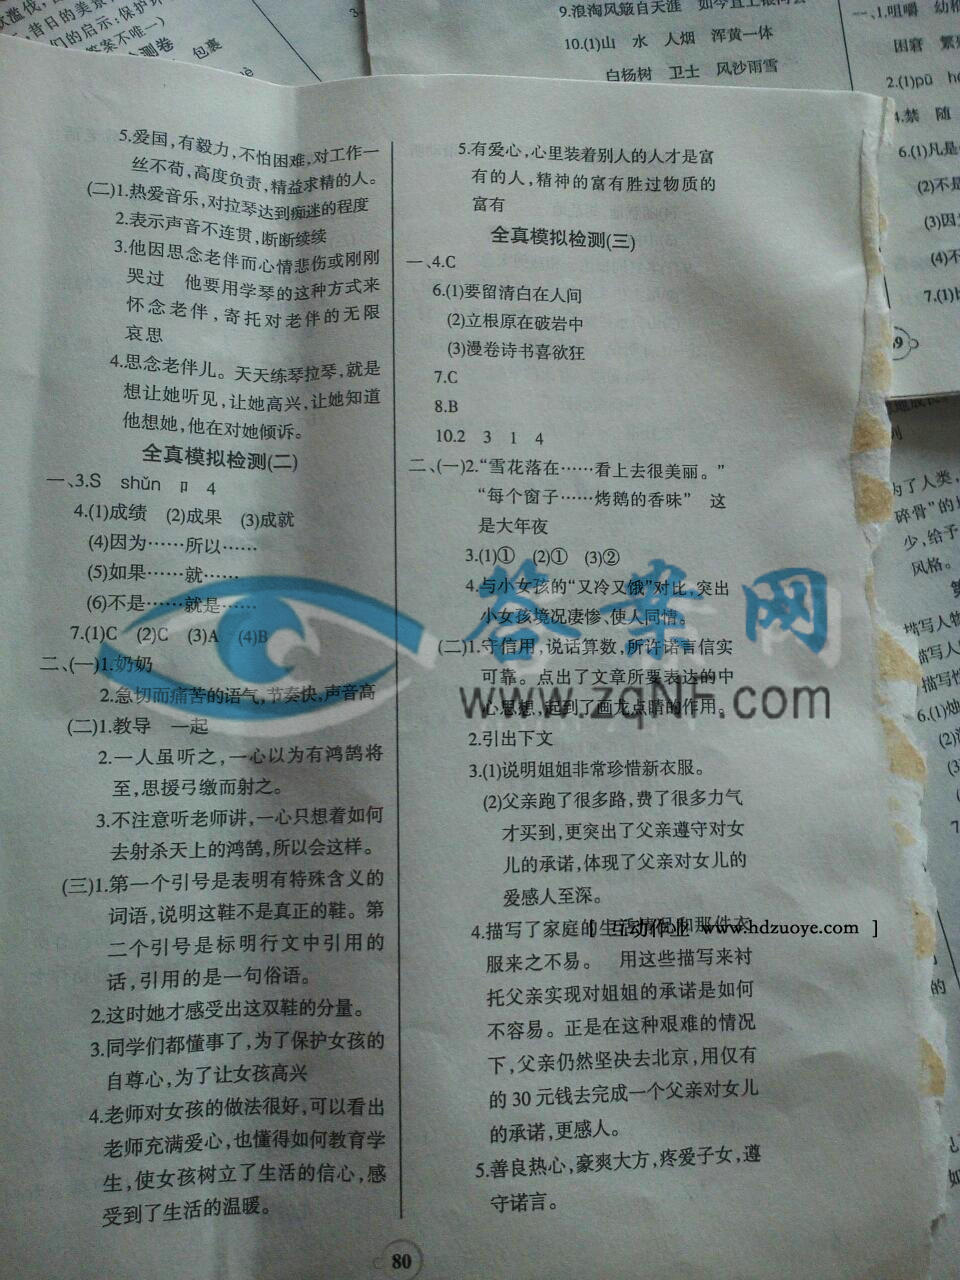 5.爱国,有毅力,不怕困难,对工作一
丝不苟,高度负责,精益求精的人。
(二)1.热爱音乐,对拉琴达到痴迷的程度
2.表示声音不连贯,断断续续
3.他因思念老伴而心情悲伤或刚刚
哭过 他要用学琴的这种方式来
怀念老伴,寄托对老伴的无限
哀思
4.思念老伴儿。天天练琴拉琴,就是
想让她听见,让她高兴,让她知道
他想她,他在对她倾诉。
全真模拟检测(二)
一、3.S shǔn 卩 4
4.(1)成绩 (2)成果 (3)成就
(4)因为……所以……
(5)如果……就……
(6)不是……就是……
7.(1)C (2)C (3)A (4)B
二、(一)1.奶奶
2.急切而痛苦的语气,节奏快,声音高
(二)1.教导 一起
2.一人虽听之,一心以为有鸿鹄将
至,思援弓缴而射之。
3.不注意听老师讲,一心只想着如何
去射杀天上的鸿鹄,所以会这样。
(三)1.第一个引号是表明有特殊含义的
词语,说明这鞋不是真正的鞋。第
二个引号是标明行文中引用的
话,引用的是一句俗语。
2.这时她才感受出这双鞋的分量。
3.同学们都懂事了,为了保护女孩的
自尊心,为了让女孩高兴
4.老师对女孩的做法很好,可以看出
老师充满爱心,也懂得如何教育学
生,使女孩树立了生活的信心,感
受到了生活的温暖。
5.有爱心,心里装着别人的人才是富
有的人,精神的富有胜过物质的
富有
全真模拟检测(三)
一、4.C
6.(1)要留清白在人间
(2)立根原在破岩中
(3)漫卷诗书喜欲狂
7.C
8.B
10.2 3 1 4
二、(一)2.“雪花落在……看上去很美丽。”
“每个窗子……烤鹅的香味” 这
是大年夜
3.(1)① (2)① (3)②
4.与小女孩的“又冷又饿”对比,突出
小女孩境况凄惨、使人同情。
(二)1.守信用,说话算数,所许诺言信实
可靠。点出了文章所要表达的中
心思想,起到了画龙点睛的作用。
2.引出下文
3.(1)说明姐姐非常珍惜新衣服。
(2)父亲跑了很多路,费了很多力气
才买到,更突出了父亲遵守对女
儿的承诺,体现了父亲对女儿的
爱感人至深。
4.描写了家庭的生活情况和那件衣
服来之不易。 用这些描写来衬
托父亲实现对姐姐的承诺是如何
不容易。正是在这种艰难的情况
下,父亲仍然坚决去北京,用仅有
的30元钱去完成一个父亲对女儿
的承诺,更感人。
5.善良热心,豪爽大方,疼爱子女,遵
守诺言。
80
答案网
www.zqNF.com
[ 互动作业 www.hdzuoye.com ]
9.浪淘风簸自天涯
10.(1)山 水 人烟 浑黄一体
白杨树 卫士 风沙雨雪
包裹
一、1.咀嚼
困窘
2.(1)pū
4.禁 随
6.(1)凡是
(2)不是
(3)因为
7.(1)